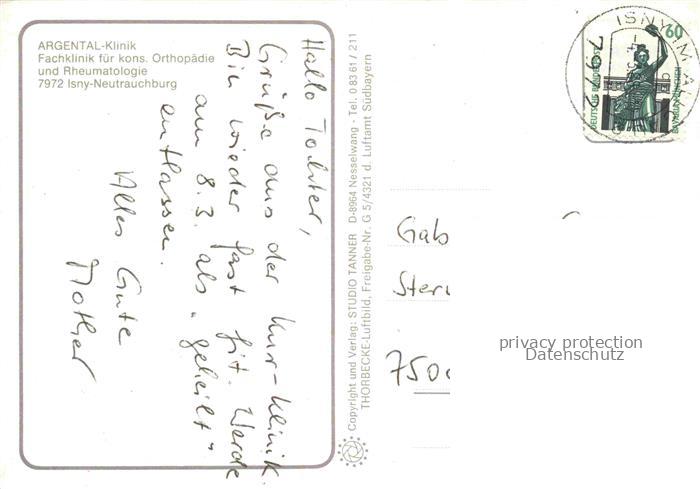 ARGENTAL-Klinik
Fachklinik für kons. Orthopädie
und Rheumatologie
7972 Isny-Neutrauchburg
Hallo Tochter,
Grüße aus der Kur-Klinik.
Bin wieder fast fit. Werde
am 8.3. als „geheilt"
entlassen.
Alles Gute
Mother
Copyright und Verlag: STUDIO TANNER D-8964 Nesselwang - Tel. 0 83 61 / 2 11
THORBECKE-Luftbild, Freigabe-Nr. G 5/4321 d. Luftamt Südbayern
60
DEUTSCHE BUNDESPOST
ISNY IM
7972
Gab
Stern
750
privacy protection
Datenschutz